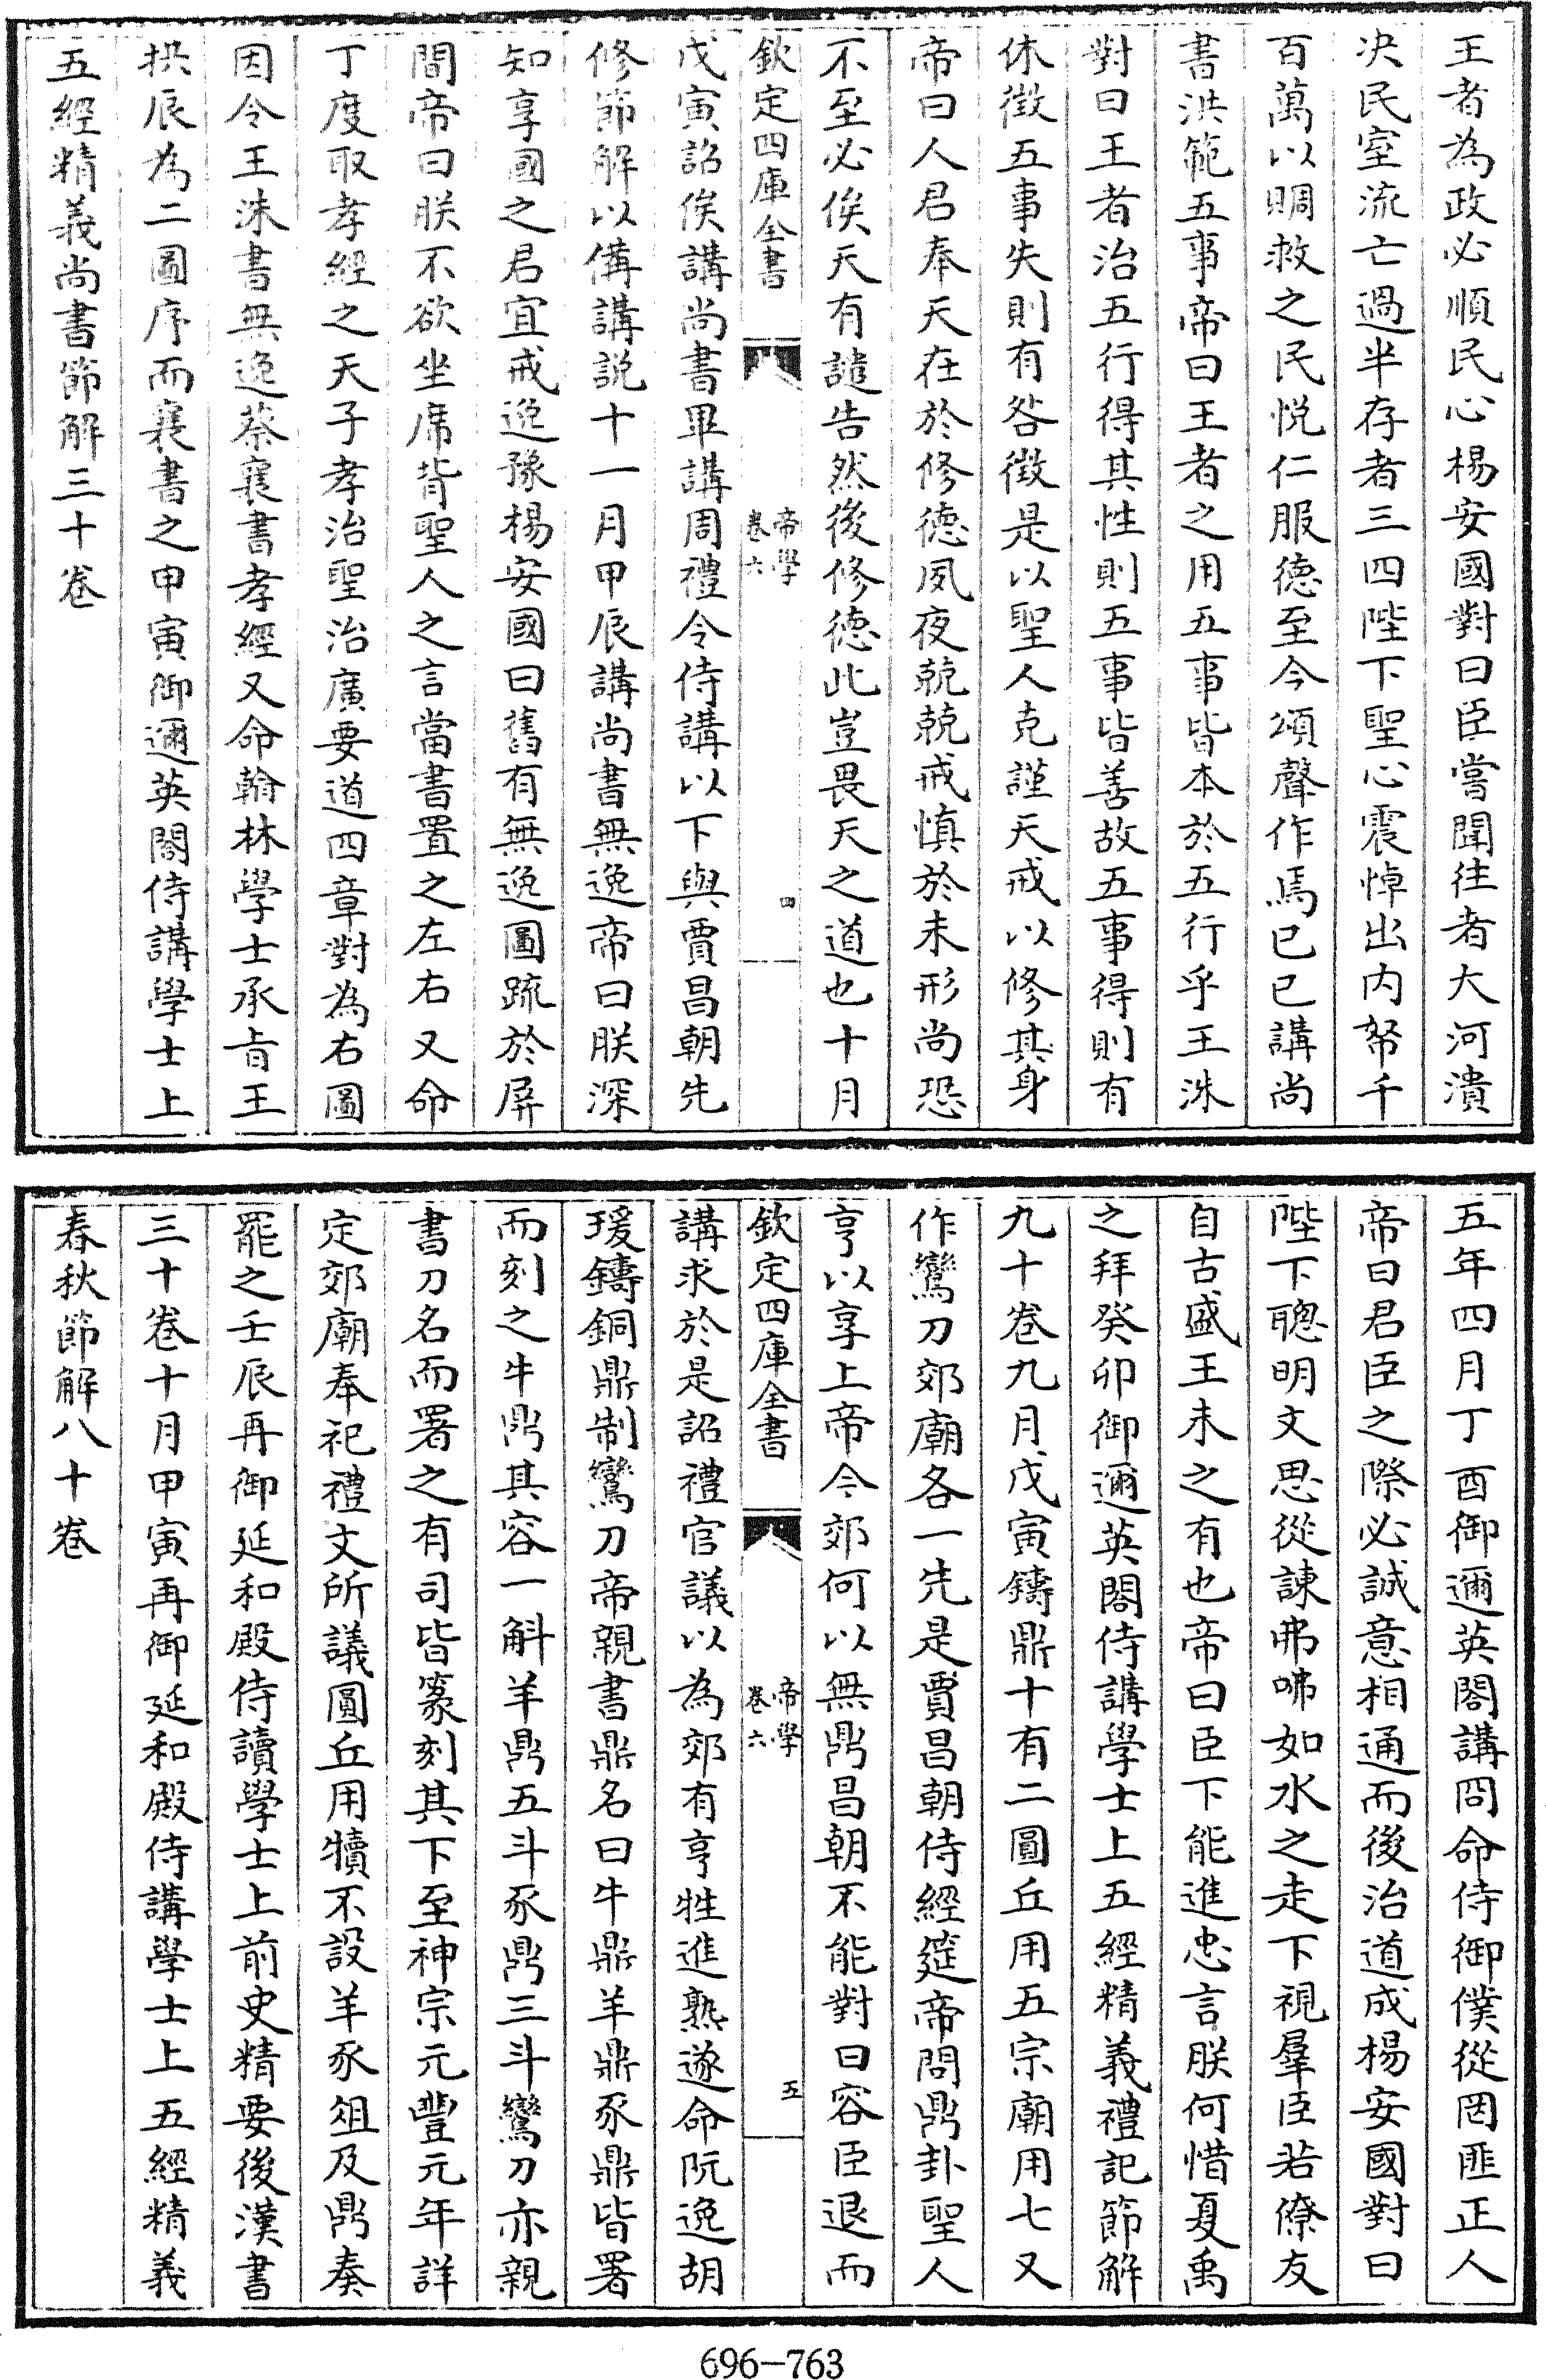 王者為政必順民心楊安國對曰臣嘗聞往者大河潰
決民室流亡過半存者三四陛下聖心震悼出内帑千
百萬以賙救之民悦仁服德至今頌聲作焉己巳講尚
書洪範五事帝曰王者之用五事皆本於五行乎王洙
對曰王者治五行得其性則五事皆善故五事得則有
休徴五事失則有咎徴是以聖人克謹天戒以修其身
帝曰人君奉天在於修德夙夜兢兢戒慎於未形尚恐
不至必俟天有譴告然後修德此豈畏天之道也十月
欽定四庫全書
帝學
卷六
四
戊寅詔俟講尚書畢講周禮令侍講以下與賈昌朝先
修節解以備講説十一月甲辰講尚書無逸帝曰朕深
知享國之君宜戒逸豫楊安國曰舊有無逸圖䟽於屏
間帝曰朕不欲坐席背聖人之言當書置之左右又命
丁度取孝經之天子孝治聖治廣要道四章對為右圖
因令王洙書無逸蔡襄書孝經又命翰林學士承㫖王
拱辰為二圖序而襄書之甲寅御邇英閣侍講學士上
五經精義尚書節解三十卷
五年四月丁酉御邇英閣講冏命侍御僕從罔匪正人
帝曰君臣之際必誠意相通而後治道成楊安國對曰
陛下聰明文思從諌弗咈如水之走下視羣臣若僚友
自古盛王未之有也帝曰臣下能進忠言朕何惜夏禹
之拜癸卯御邇英閣侍講學士上五經精義禮記節解
九十卷九月戊寅鑄鼎十有二圓丘用五宗廟用七又
作鸞刀郊廟各一先是賈昌朝侍經筵帝問鼎卦聖人
亨以享上帝今郊何以無鼎昌朝不能對曰容臣退而
欽定四庫全書
帝學
卷六
五
講求於是詔禮官議以為郊有亨牲進熟遂命阮逸胡
瑗鑄銅鼎制鸞刀帝親書鼎名曰牛鼎羊鼎豕鼎皆署
而刻之牛鼎其容一斛羊鼎五斗豕鼎三斗鸞刀亦親
書刀名而署之有司皆篆刻其下至神宗元豐元年詳
定郊廟奉祀禮文所議圓丘用犢不設羊豕俎及鼎奏
罷之壬辰再御延和殿侍讀學士上前史精要後漢書
三十卷十月甲寅再御延和殿侍講學士上五經精義
春秋節解八十卷
696-763